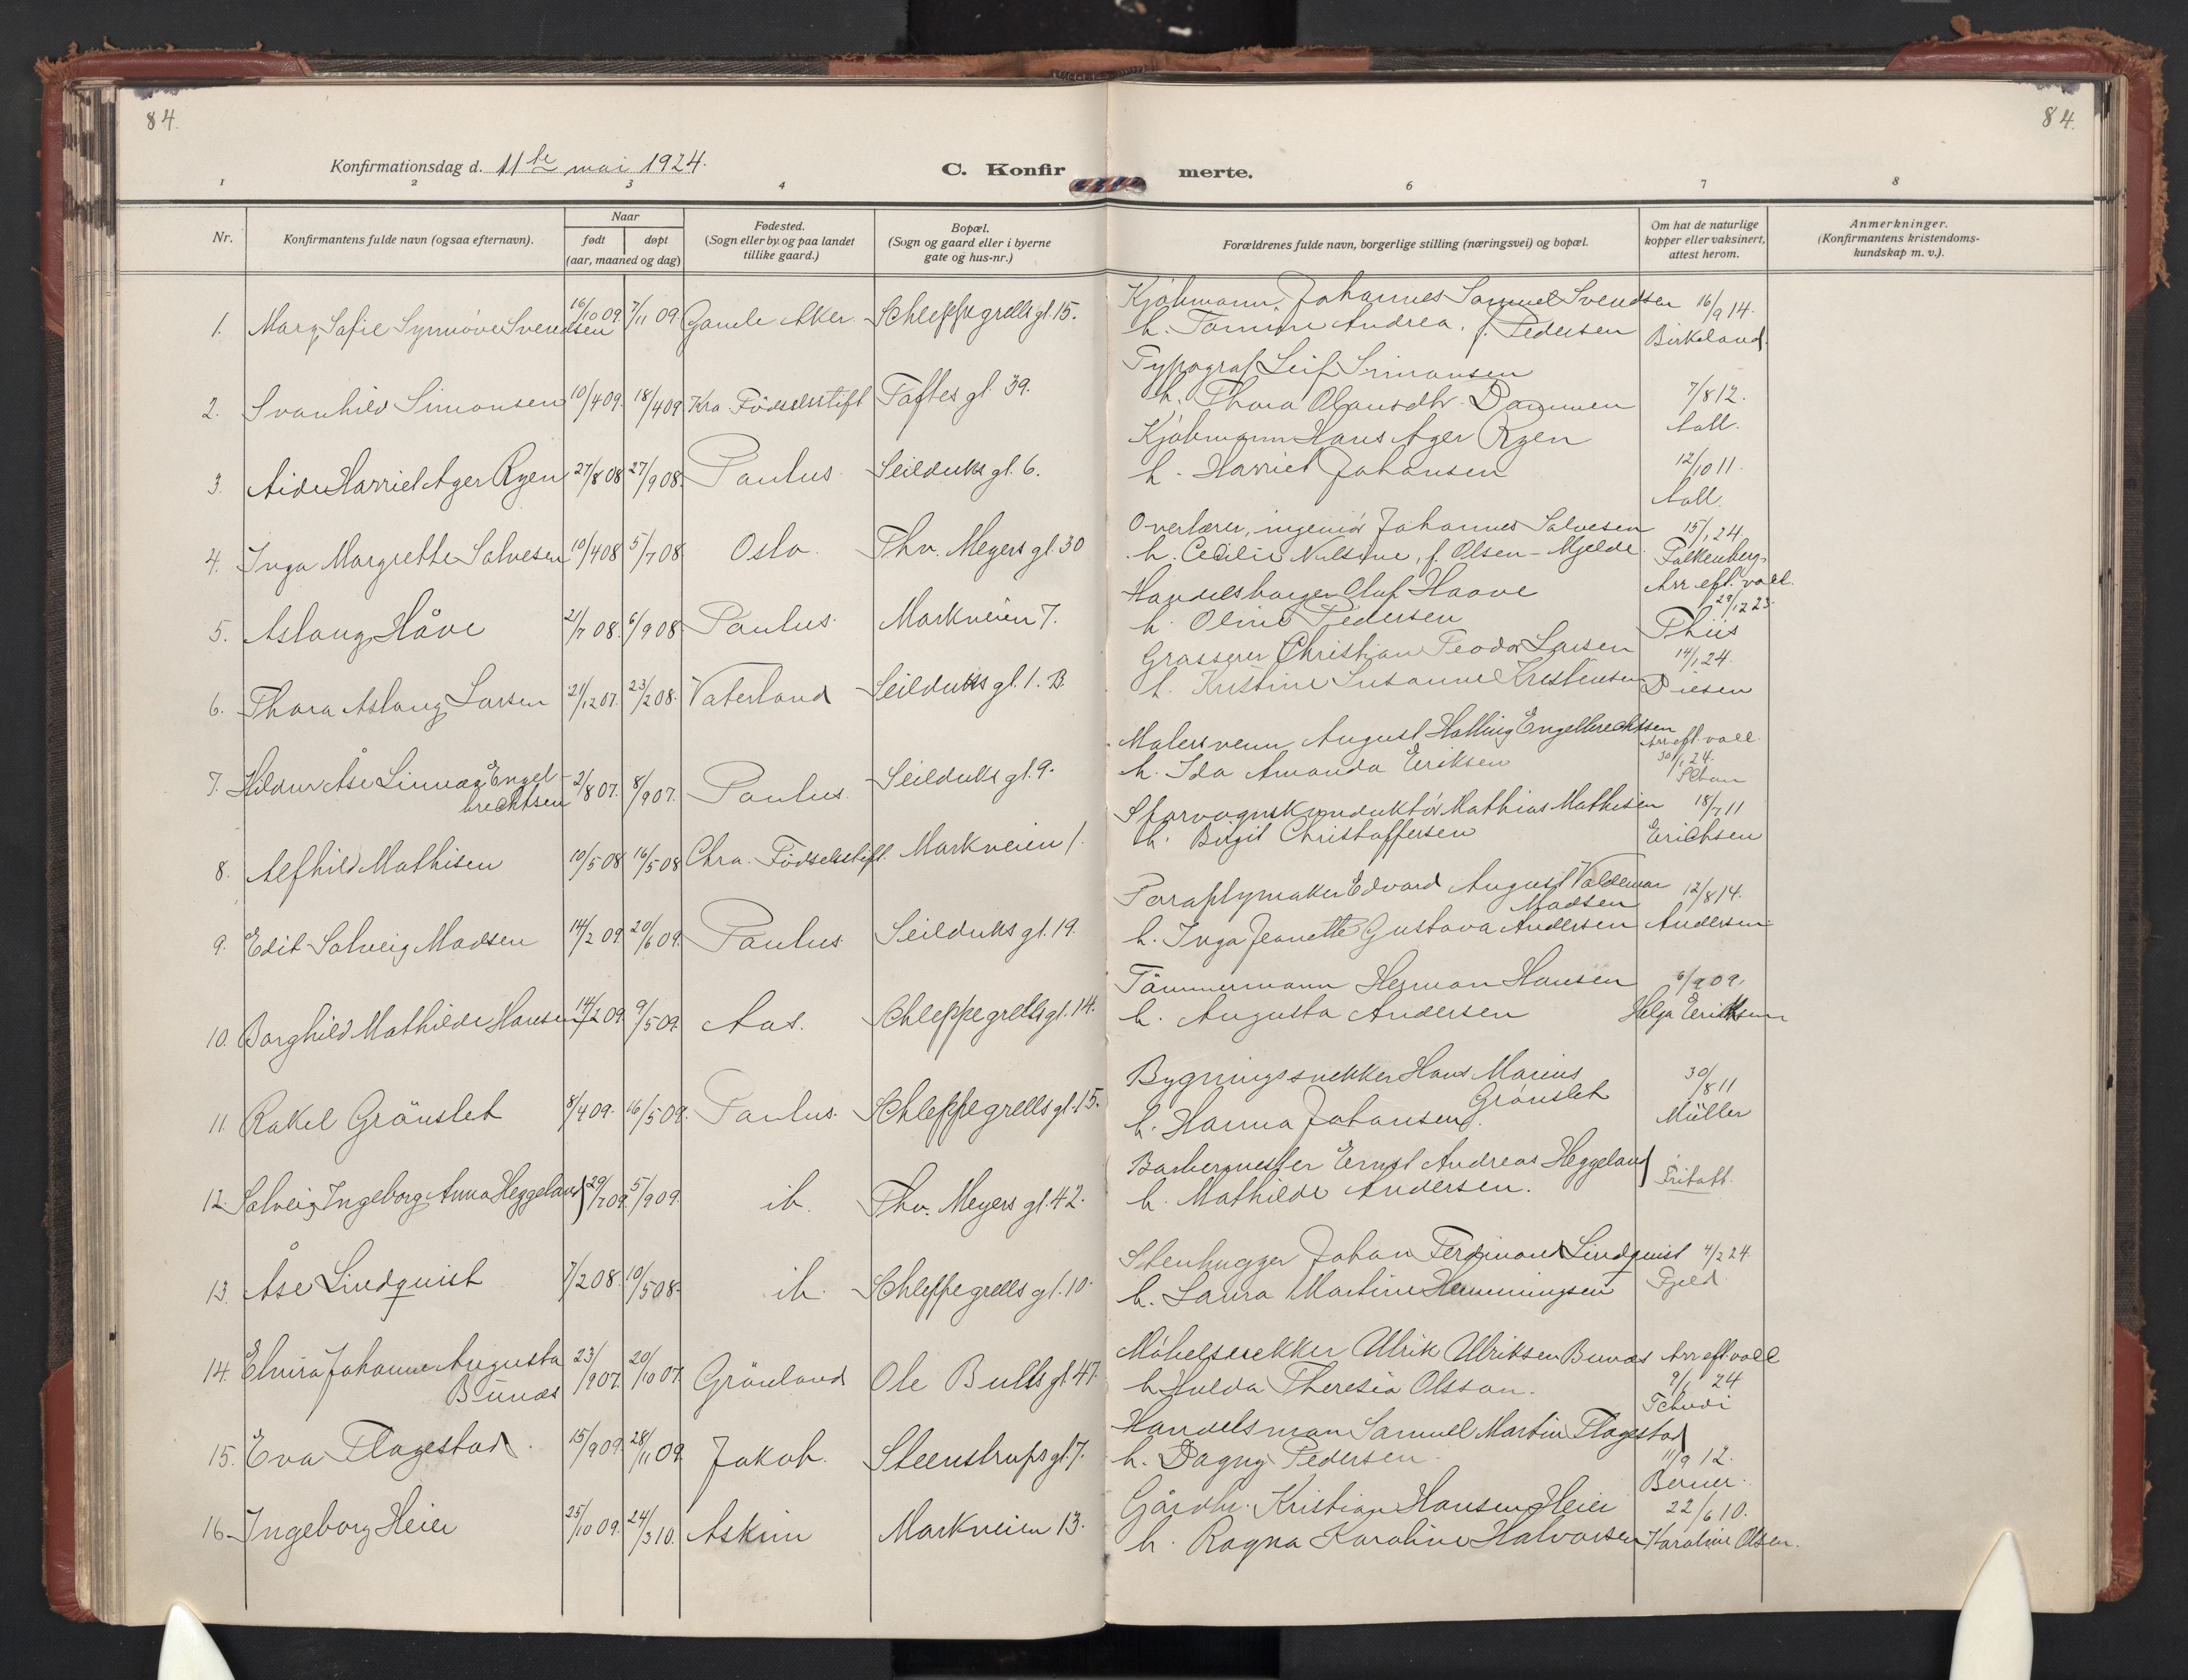 84.
84.
Konfirmationsdag d. 11te mai 1924.
C. Konfirmerte.
1 2 3 4 6 7 8
Nr.
Konfirmantens fulde navn (ogsaa efternavn).
Naar
født
døpt
(aar, maaned og dag)
Fødested.
(Sogn eller by. og paa landet
tillike gaard.)
Bopæl.
(Sogn og gaard eller i byerne
gate og hus-nr.)
Forældrenes fulde navn, borgerlige stilling (næringsvei) og bopæl.
Om hat de naturlige
kopper eller vaksinert,
attest herom.
Anmerkninger.
(Konfirmantens kristendoms-
kundskap m. v.).
1. Mary Sofie Synnøve Svendsen 16/10 09. 7/11 09 Gamle Aker. Schleppegrells gt. 15.
Kjøbmann Johannes Samuel Svendsen 16/9 14.
h. Tomine Andrea, f. Pedersen Birkeland.
2. Svanhild Simonsen 10/4 09. 18/4 09 Kra Fødselsstift Toftes gt. 39.
Typograf Leif Simonsen 7/8 12.
h. Thora Olausdtr. Dammen Aall.
3. Aide Harriet Ager Ryen 27/8 08 27/9 08. Paulus Seilduks gt. 6.
Kjøbmann Hans Ager Ryen 12/10 11.
h. Harriet Johansen Aall.
4. Inga Margrethe Salvesen 10/4 08 5/7 08 Oslo. Thv. Meyers gt. 30
Overlærer, ingeniør Johannes Salvesen 15/1 24
h. Cecilie Nilsine, f. Olsen-Mjelde. Falkenberg.
5. Aslaug Håve 21/7 08. 6/9 08 Paulus. Markveien 7.
Handelsborger Oluf Haave Arr eft. vacc.
29/12 23.
h. Oline Pedersen Thiis
6. Thora Aslaug Larsen 21/12 07. 23/2 08. Vaterland Seilduks gt. 1. B.
Grosserer Christian Teodor Larsen 14/1 24.
h. Kristine Susanne Kristensen Diesen
7. Hildur Åse Linnæa Engel-
brechtsen 2/8 07. 8/9 07. Paulus. Seilduks gt. 9.
Malersvenn August Halling Engelbrechtsen Arr eft. vacc.
30/1 24.
h. Ida Amanda Eriksen
8. Alfhild Mathisen 10/5 08 16/5 08 Chra. Fødselsstift. Markveien 1.
Sporvognskonduktør Mathias Mathisen 18/7 11
h. Birgit Christoffersen Erichsen
9. Edit Solveig Madsen 14/2 09 20/6 09. Paulus. Seilduks gt. 19.
Paraplymaker Edvard August Valdemar
Madsen 12/8 14.
h. Inga Jeanette Gustava Andersen Andersen
10. Borghild Mathilde Hansen 14/2 09. 9/5 09. Aas. Schleppegrells gt. 14.
Tømmermann Herman Hansen 6/9 09.
h. Augusta Andersen Helga Eriksen
11. Rakel Grønslet 8/4 09. 16/5 09. Paulus. Schleppegrells gt. 15.
Bygningssnekker Hans Marius
Grønslet 30/8 11
h. Hanna Johansen. Müller
12. Solveig Ingeborg Anna Heggeland 29/7 09. 5/9 09. ib. Thv. Meyers gt. 42.
Barbermester Ernst Andreas Heggeland
h. Mathilde Andersen. Fritatt.
13. Åse Lindquist 7/2 08. 10/5 08. ib. Schleppegrells gt. 10.
Stenhugger Johan Ferdinand Lindquist 4/2 24
h. Laura Martine Hemmingsen Fjeld.
14. Elvira Johanne Augusta
Bunæs 23/9 07. 20/10 07. Grønland Ole Bulls gt. 47.
Møbelsnekker Ulrik Ulriksen Bunæs Arr eft. vacc
h. Hulda Theresia Olsson. 9/1 24
Tchudi
15. Eva Flagestad. 15/9 09. 28/11 09. Jakob. Steenstrups gt. 7.
Handelsman Samuel Martin Flagestad
h. Dagny Pedersen. 11/9 12.
Berner.
16. Ingeborg Heier 25/10 09. 24/3 10. Askim Markveien 13.
Gårdbr. Kristian Hansen Heier 22/6 10.
h. Ragna Karoline Halvorsen Karoline Olsen.